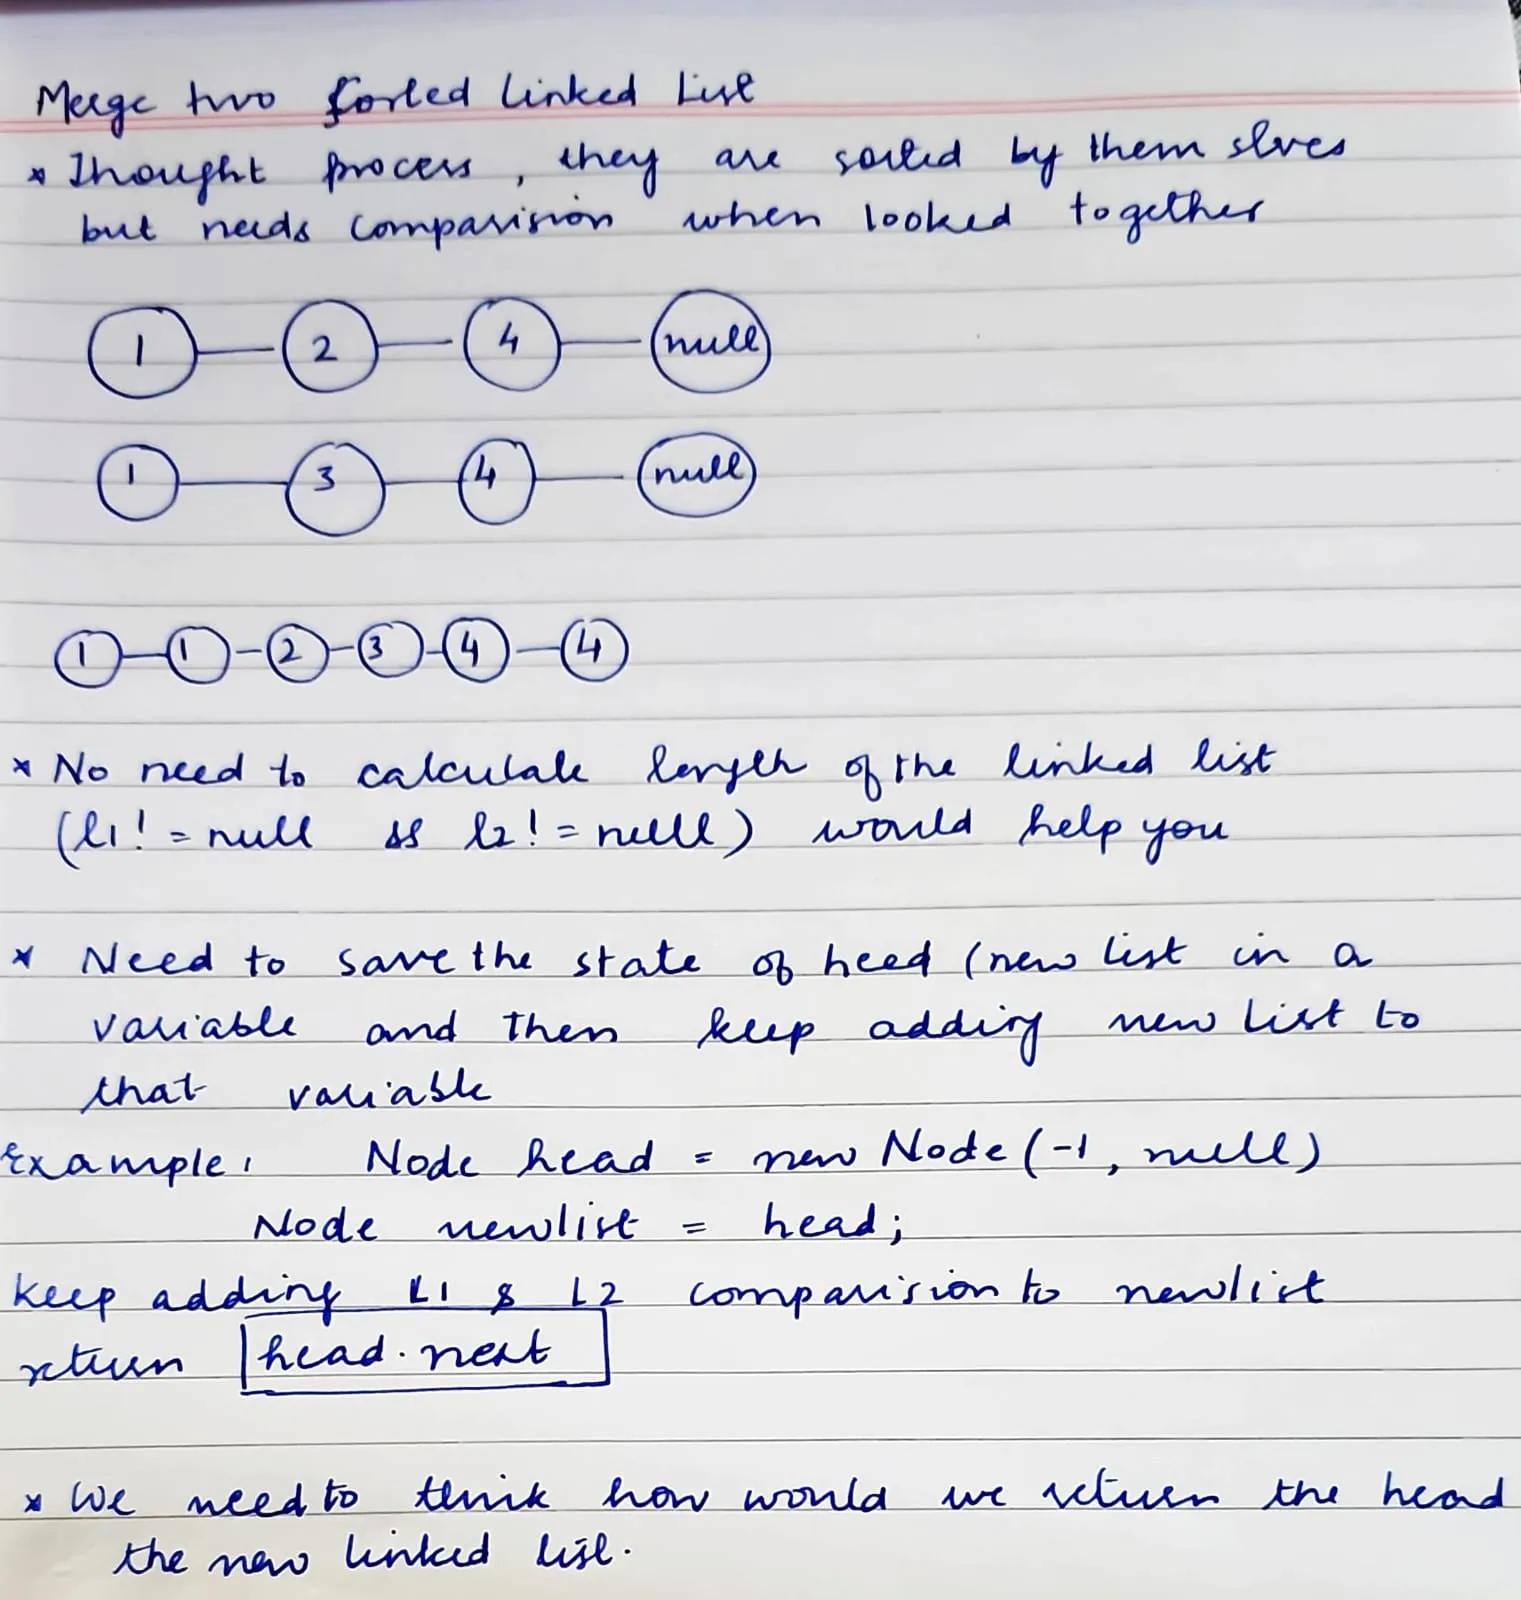 Merge two sorted linked List
* Thought process, they are sorted by them slves
but needs comparision when looked together
1 2 4 null
1 3 4 null
1 1 2 3 4 4
* No need to calculate length of the linked list
(l1! = null && l2! = null) would help you
* Need to save the state of head (new list in a
variable and then keep adding new list to
that variable
Example: Node head = new Node (-1, null)
Node newlist = head;
keep adding L1 & L2 comparision to newlist
return head.next
* We need to think how would we return the head
the new linked list.